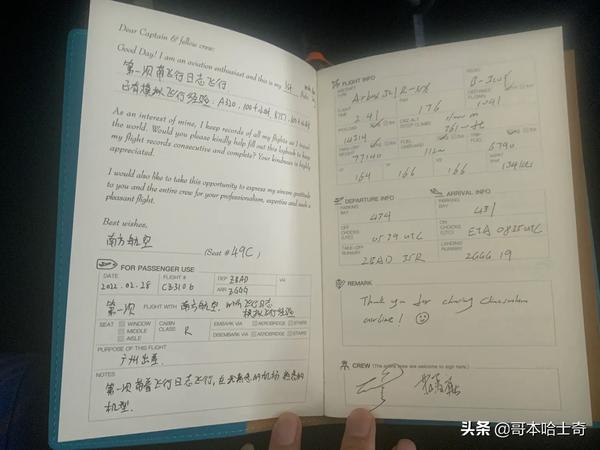 Dear Captain & fellow crew:
Good Day! I am an aviation enthusiast and this is my 1st
第一次带飞行日志飞行
已有模拟飞行经验: A320, 100+小时, B737, 100+小时
As an interest of mine, I keep records of all my flights as I travel
the world. Would you please kindly help fill out this logbook to keep
my flight records consecutive and complete? Your kindness is highly
appreciated.
I would also like to take this opportunity to express my sincere gratitude
to you and the entire crew for your professionalism, expertise and such a
pleasant flight.
Best wishes,
南方航空
(Seat # 49C)
FOR PASSENGER USE
DATE
2022.02.28
FLIGHT #
CZ3106
DEP ZBAD
ARR ZGGG
VIA
第一次 FLIGHT WITH 南方航空, with 飞行日志
模拟飞行经验
SEAT
WINDOW
MIDDLE
AISLE
CABIN CLASS
R
EMBARK VIA AEROBRIDGE STAIRS
DISEMBARK VIA AEROBRIDGE STAIRS
PURPOSE OF THIS FLIGHT
广州出差
NOTES
第一次带着飞行日志飞行, 在熟悉的机场 熟悉的
机型.
FLIGHT INFO
AIRCRAFT TYPE
REG#
FLIGHT TIME
241
PAX
176
DISTANCE FLOWN
1041
PAYLOAD
14314
CRZ ALT
STEP CLIMB
TAKE-OFF WEIGHT
77140
FUEL ONBOARD
TRIP FUEL
8790
V1
164
VR
166
V2
166
DEPARTURE INFO
PARKING BAY
474
OFF CHOCKS (UTC)
0539 UTC
TAKE-OFF RUNWAY
ZBAD 35R
ARRIVAL INFO
PARKING BAY
ON CHOCKS (UTC)
ETA 0835 UTC
LANDING RUNWAY
ZGGG 19
REMARK
Thank you for chosing Chinasouthern
airline!
CREW (The entire crew are welcome to sign here.)
头条 @哥本哈士奇